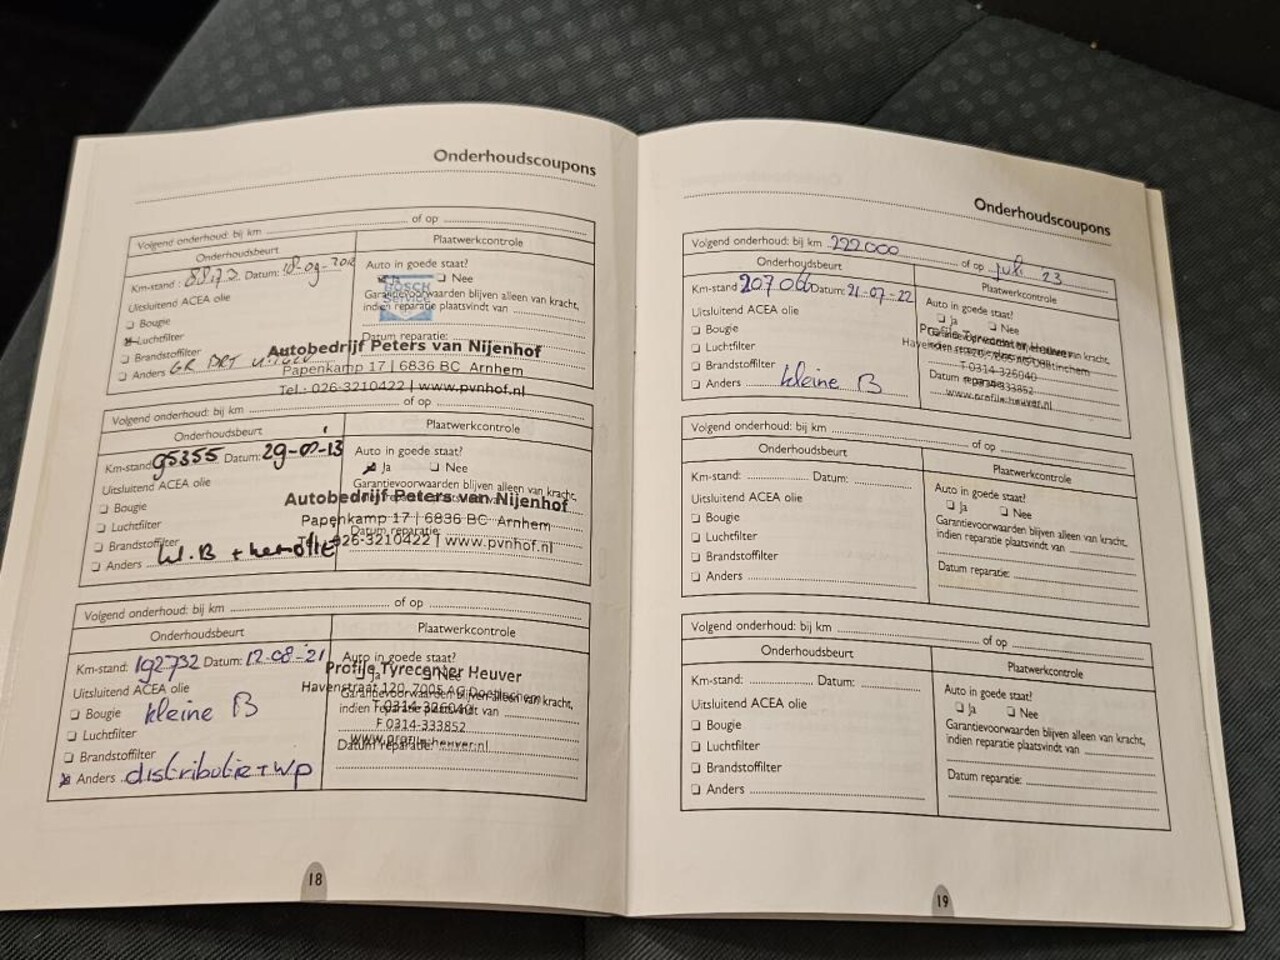 Onderhoudscoupons
Volgend onderhoud: bij km of op
Onderhoudsbeurt Plaatwerkcontrole
Km-stand: Datum: 18-09-2012 Auto in goede staat?
Ja Nee
Uitsluitend ACEA olie Garantievoorwaarden blijven alleen van kracht,
BOSCH
Service
Bougie indien reparatie plaatsvindt van
Luchtfilter Datum reparatie:
Brandstoffilter
Anders GR BRT
Autobedrijf Peters van Nijenhof
Papenkamp 17 | 6836 BC Arnhem
Tel.: 026-3210422 | www.pvnhof.nl
Volgend onderhoud: bij km of op
Onderhoudsbeurt Plaatwerkcontrole
Km-stand 95355 Datum: 29-01-13 Auto in goede staat?
Ja Nee
Uitsluitend ACEA olie Garantievoorwaarden blijven alleen van kracht,
Bougie
Luchtfilter Datum reparatie:
Brandstoffilter
Anders W.B +
Autobedrijf Peters van Nijenhof
Papenkamp 17 | 6836 BC Arnhem
026-3210422 | www.pvnhof.nl
Volgend onderhoud: bij km of op
Onderhoudsbeurt Plaatwerkcontrole
Km-stand: 192732 Datum: 12-08-'21 Auto in goede staat?
Ja Nee
Uitsluitend ACEA olie Garantievoorwaarden blijven alleen van kracht,
Bougie kleine B indien reparatie plaatsvindt van
Luchtfilter
Brandstoffilter Datum reparatie:
Anders distributie + wp
Profile Tyrecenter Heuver
Havenstraat 120, 7005 AG Doetinchem
T 0314-326040
F 0314-333852
www.profile-heuver.nl
18
Onderhoudscoupons
Volgend onderhoud: bij km 222000 of op juli 23
Onderhoudsbeurt Plaatwerkcontrole
Km-stand Datum: 21-07-22 Auto in goede staat?
Ja Nee
Uitsluitend ACEA olie
Bougie
Luchtfilter
Brandstoffilter Datum reparatie:
Anders kleine B
Profile Tyrecenter Heuver
T 0314-326040
www.profile-heuver.nl
Volgend onderhoud: bij km of op
Onderhoudsbeurt Plaatwerkcontrole
Km-stand: Datum: Auto in goede staat?
Ja Nee
Uitsluitend ACEA olie Garantievoorwaarden blijven alleen van kracht,
Bougie indien reparatie plaatsvindt van
Luchtfilter
Brandstoffilter Datum reparatie:
Anders
Volgend onderhoud: bij km of op
Onderhoudsbeurt Plaatwerkcontrole
Km-stand: Datum: Auto in goede staat?
Ja Nee
Uitsluitend ACEA olie Garantievoorwaarden blijven alleen van kracht,
Bougie indien reparatie plaatsvindt van
Luchtfilter
Brandstoffilter Datum reparatie:
Anders
19